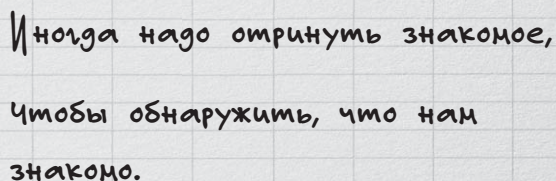 Иногда надо отринуть знакомое,
чтобы обнаружить, что нам
знакомо.